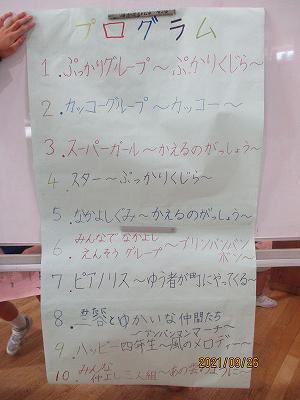 プログラム
1.ぷっかりグループ～ぷかりくじら～
2.カッコーグループ～カッコー～
3.スーパーガール～かえるのがっしょう～
4.スター～ぷっかりくじら～
5.なかよしぐみ～かえるのがっしょう～
6.みんなでなかよし
えんそうグループ～プリンパンパン
ポン～
7.ピアノリス～ゆう者が町にやってくる～
8.とゆかいな仲間たち
～アンパンマンマーチ～
9.ハッピー四年生～風のメロディー～
10.みんな
仲よし三人組～あの雲のように～
2021/09/26